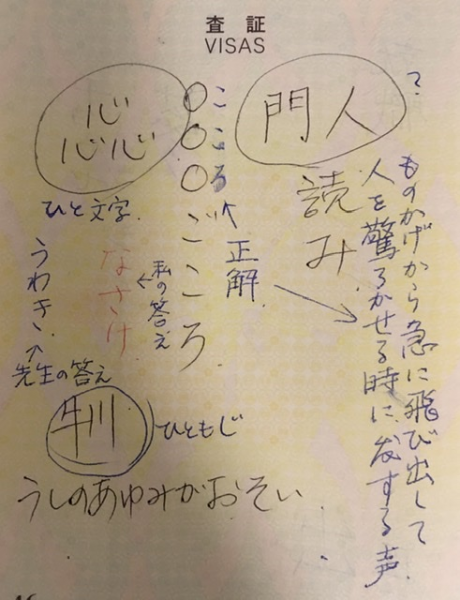 査証
VISAS
?
門人
読み
ものかげから急に飛び出して
人を驚ろかせる時に発する声
正解
○こ
○こ
○ろ
ごころ
心心心
ひと文字
私の答え
なさけ
うわき
先生の答え
牛川
ひともじ
うしのあゆみがおそい